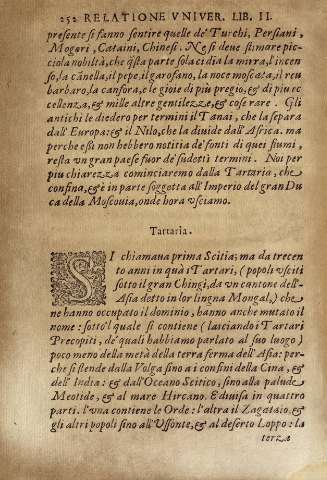 252 RELATIONE VNIVER. LIB. II.
presente si fanno sentire quelle de' Turchi, Persiani,
Mogori, Cataini, Chinesi. Ne si deue stimare pic-
ciola nobiltà, che q̃sta parte sola ci dia la mirra, l'incen
so, la cãnella, il pepe, il garofano, la noce moscata, il reu
barbaro, la canfora, e le gioie di più pregio, & di più ec
cellenza, & mille altre gentilezze, & cose rare. Gli
antichi le diedero per termini il Tanai, che la separa
dall' Europa: & il Nilo, che la diuide dall' Africa. ma
perche essi non hebbero notitia de' fonti di quei fiumi,
resta vn gran paese fuor de' sudetti termini. Noi per
piu chiarezza cominciaremo dalla Tartaria, che
confina, & è in parte soggetta all' Imperio del gran Du
ca della Moscouia, onde hora vsciamo.
Tartaria.
SI chiamaua prima Scitia; ma da trecen
to anni in quà i Tartari, (popoli vsciti
sotto il gran Chingi, da vn cantone dell'-
Asia detto in lor lingua Mongal,) che
ne hanno occupato il dominio, hanno anche mutato il
nome: sotto'l quale si contiene (lasciando i Tartari
Precopiti, de' quali habbiamo parlato al suo luogo)
poco meno della metà della terra ferma dell' Asia: per-
che si stende dalla Volga sino a i confini della Cina, &
dell' India: & dall'Oceano Scitico, sino alla palude
Meotide, & al mare Hircano. E diuisa in quattro
parti. l'vna contiene le Orde: l'altra il Zagataio, &
gli altri popoli sino all'Vssonte, & al deserto Loppo: la
terza